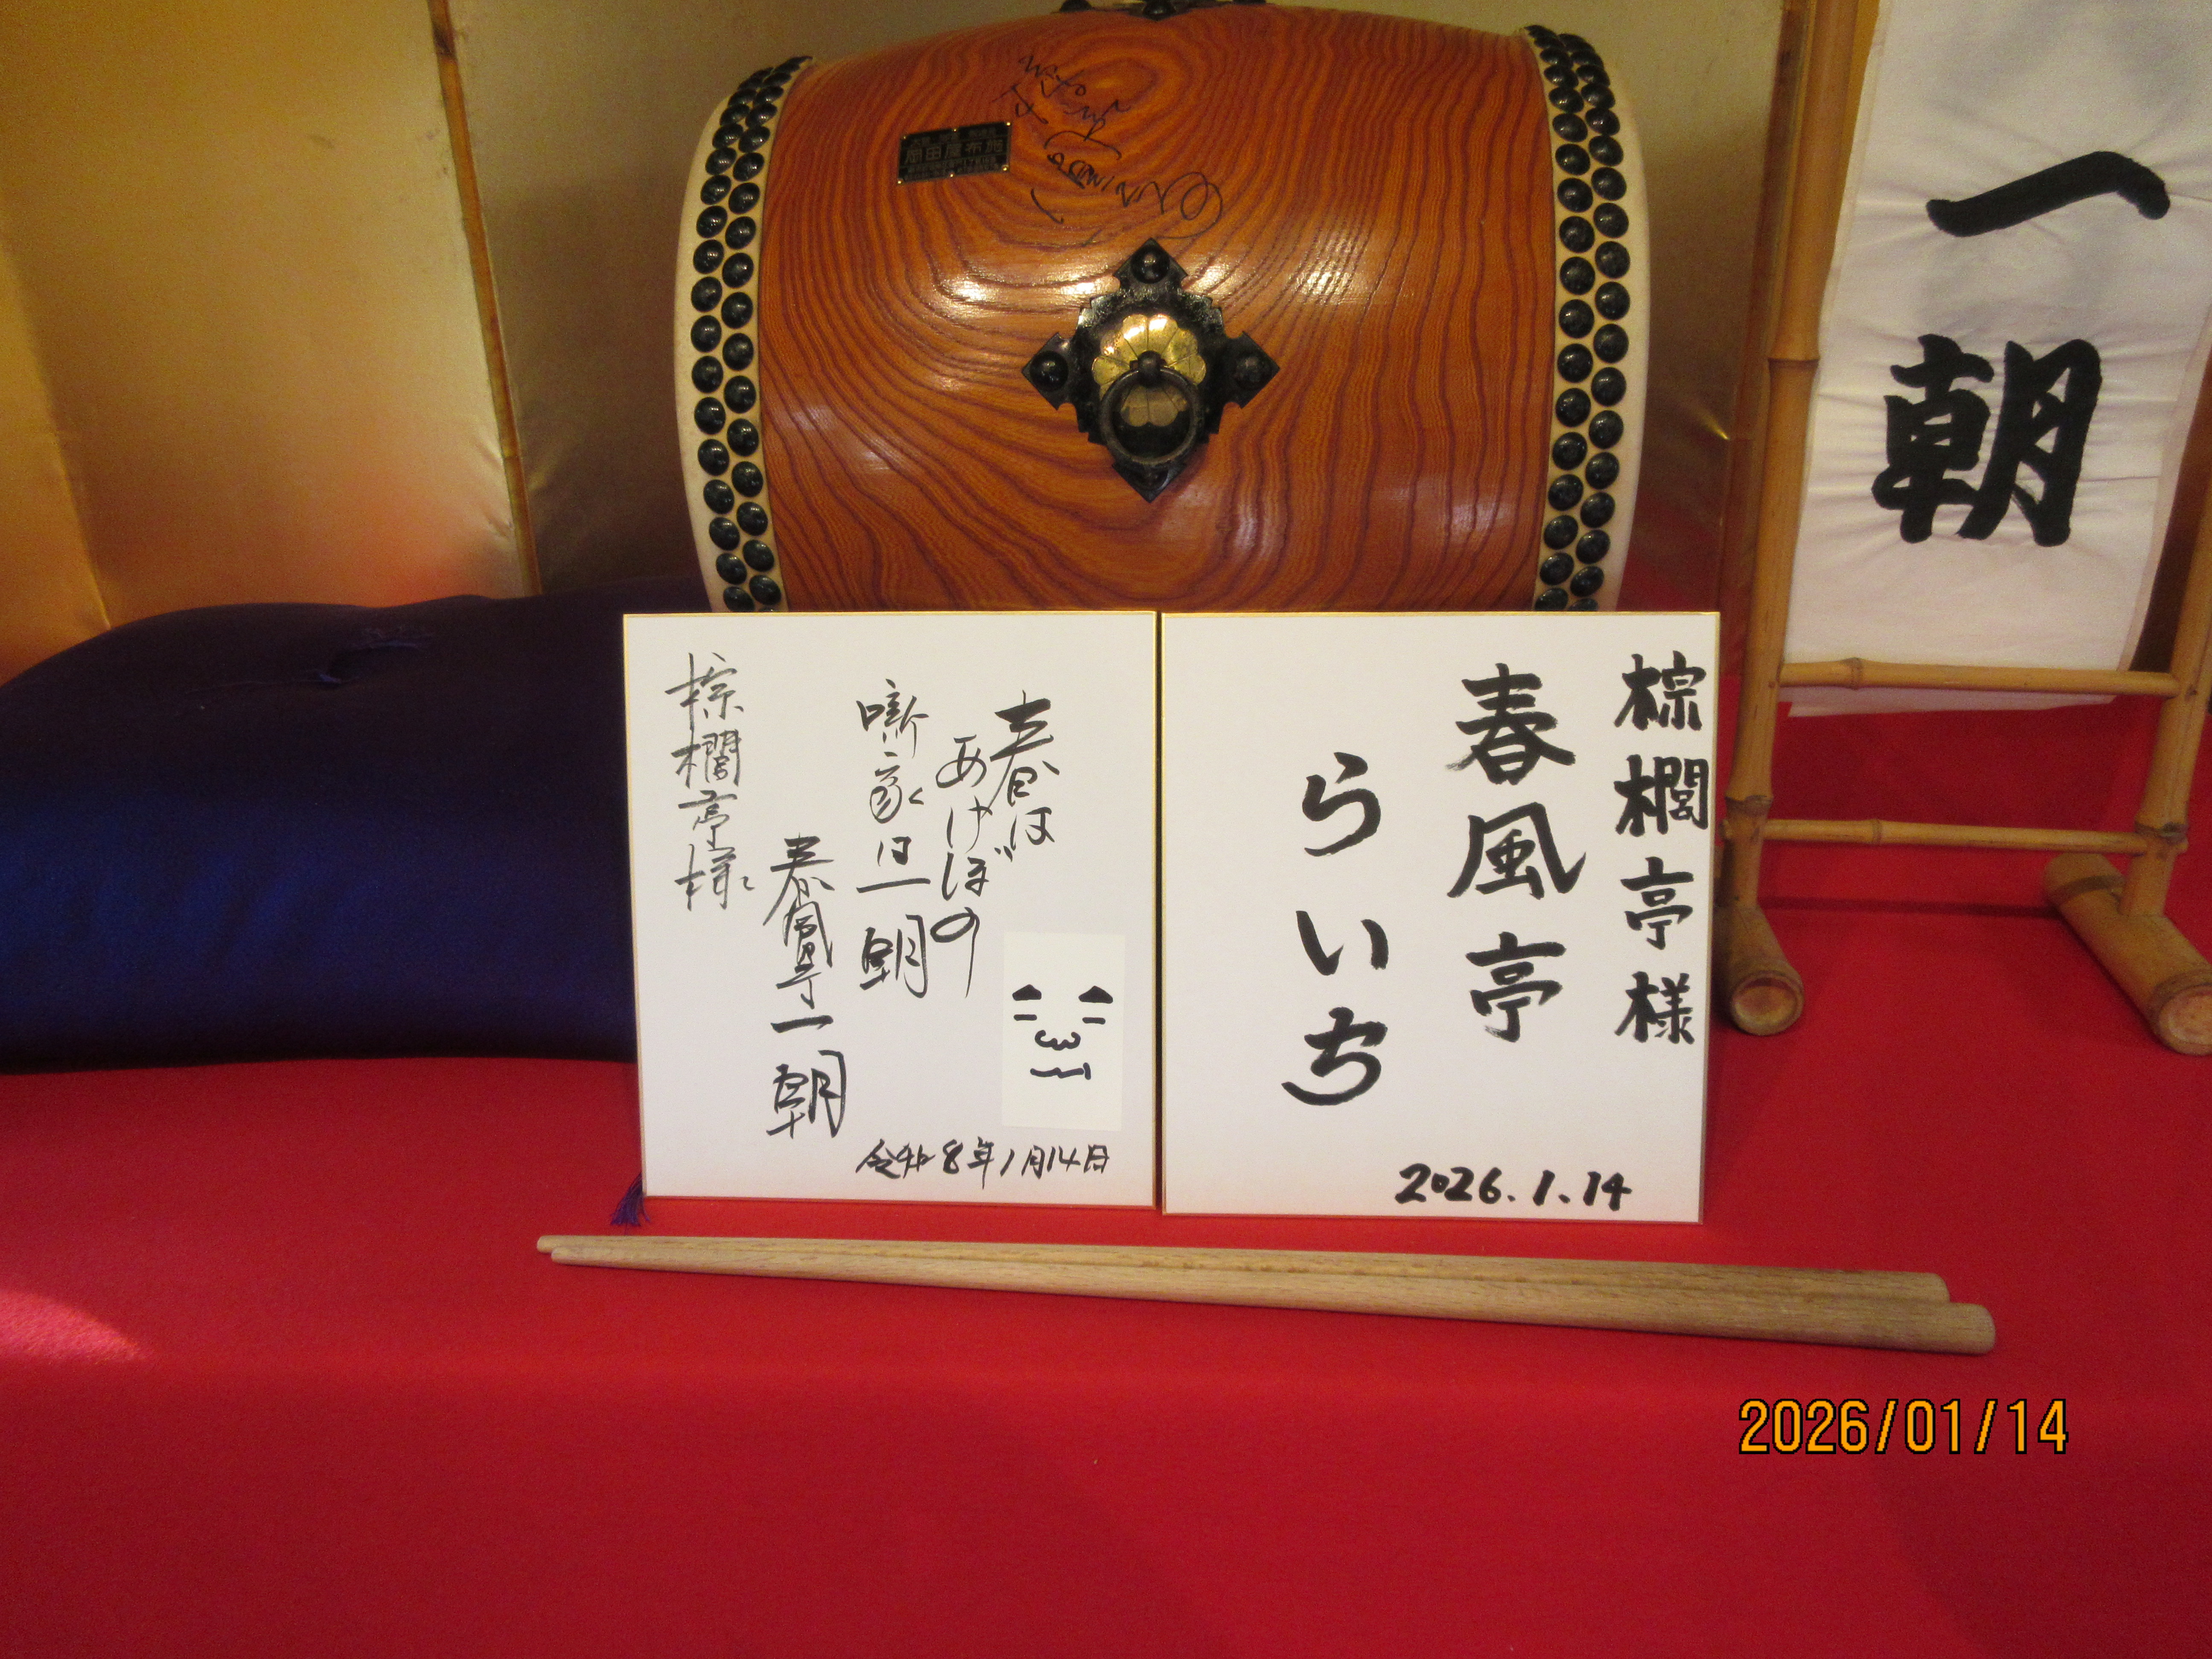 一朝
岡田屋布施
春は
あけぼの
噺家は一朝
春風亭一朝
棕櫚亭様
令和8年1月14日
棕櫚亭様
春風亭
らいち
2026.1.14
2026/01/14